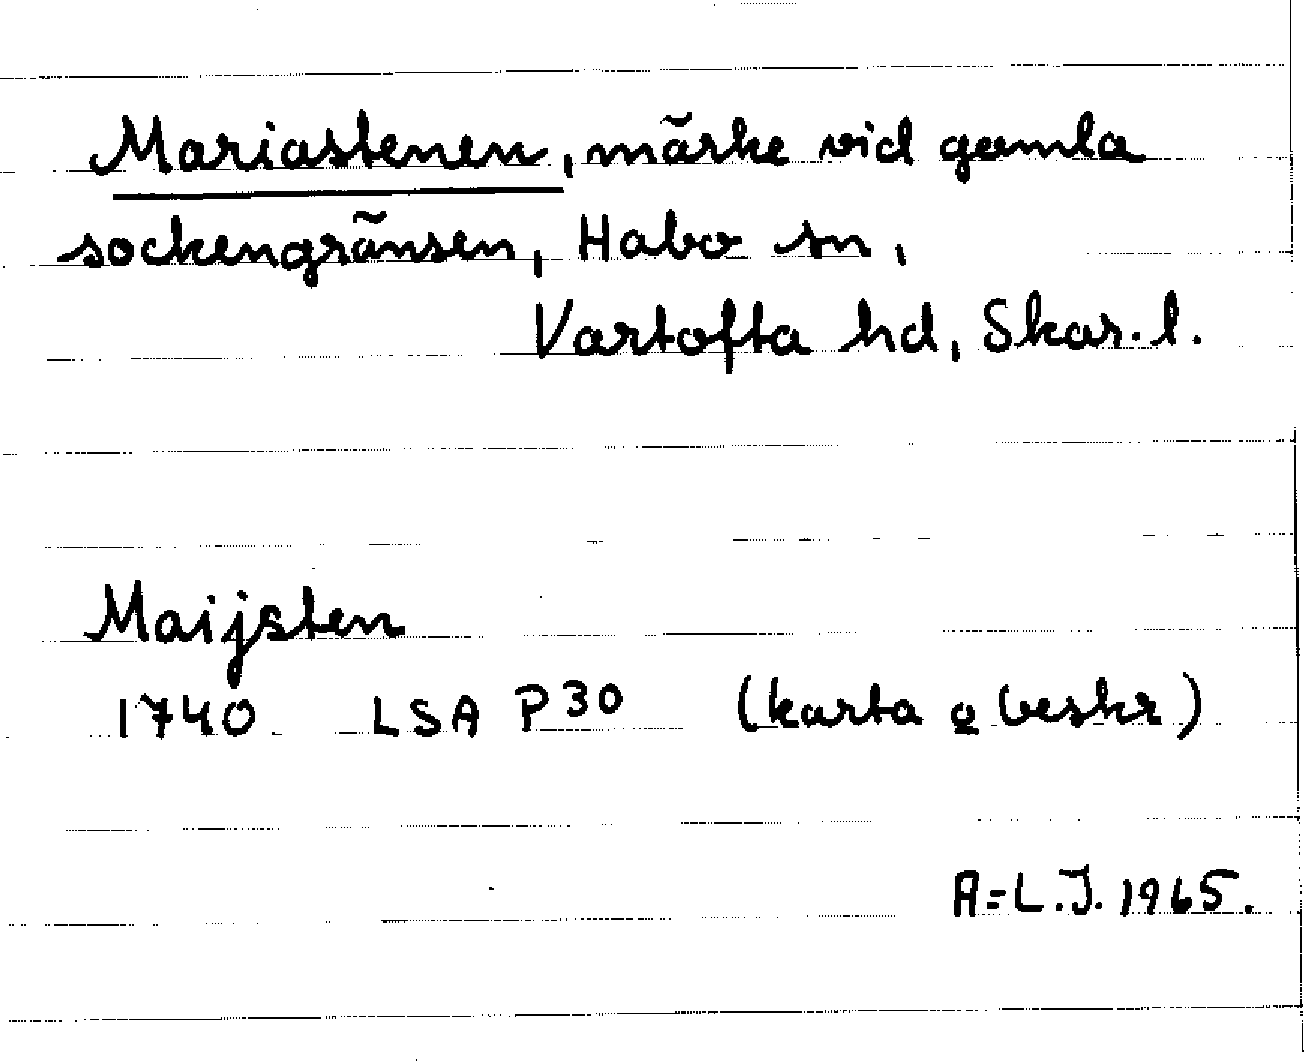 Mariastenen, märke vid gamla
sockengränsen, Habo sn,
Vartofta hd, Skar. l.
Maijsten
1740 LSA P30 (karta o beskr)
A=L.J. 1965.